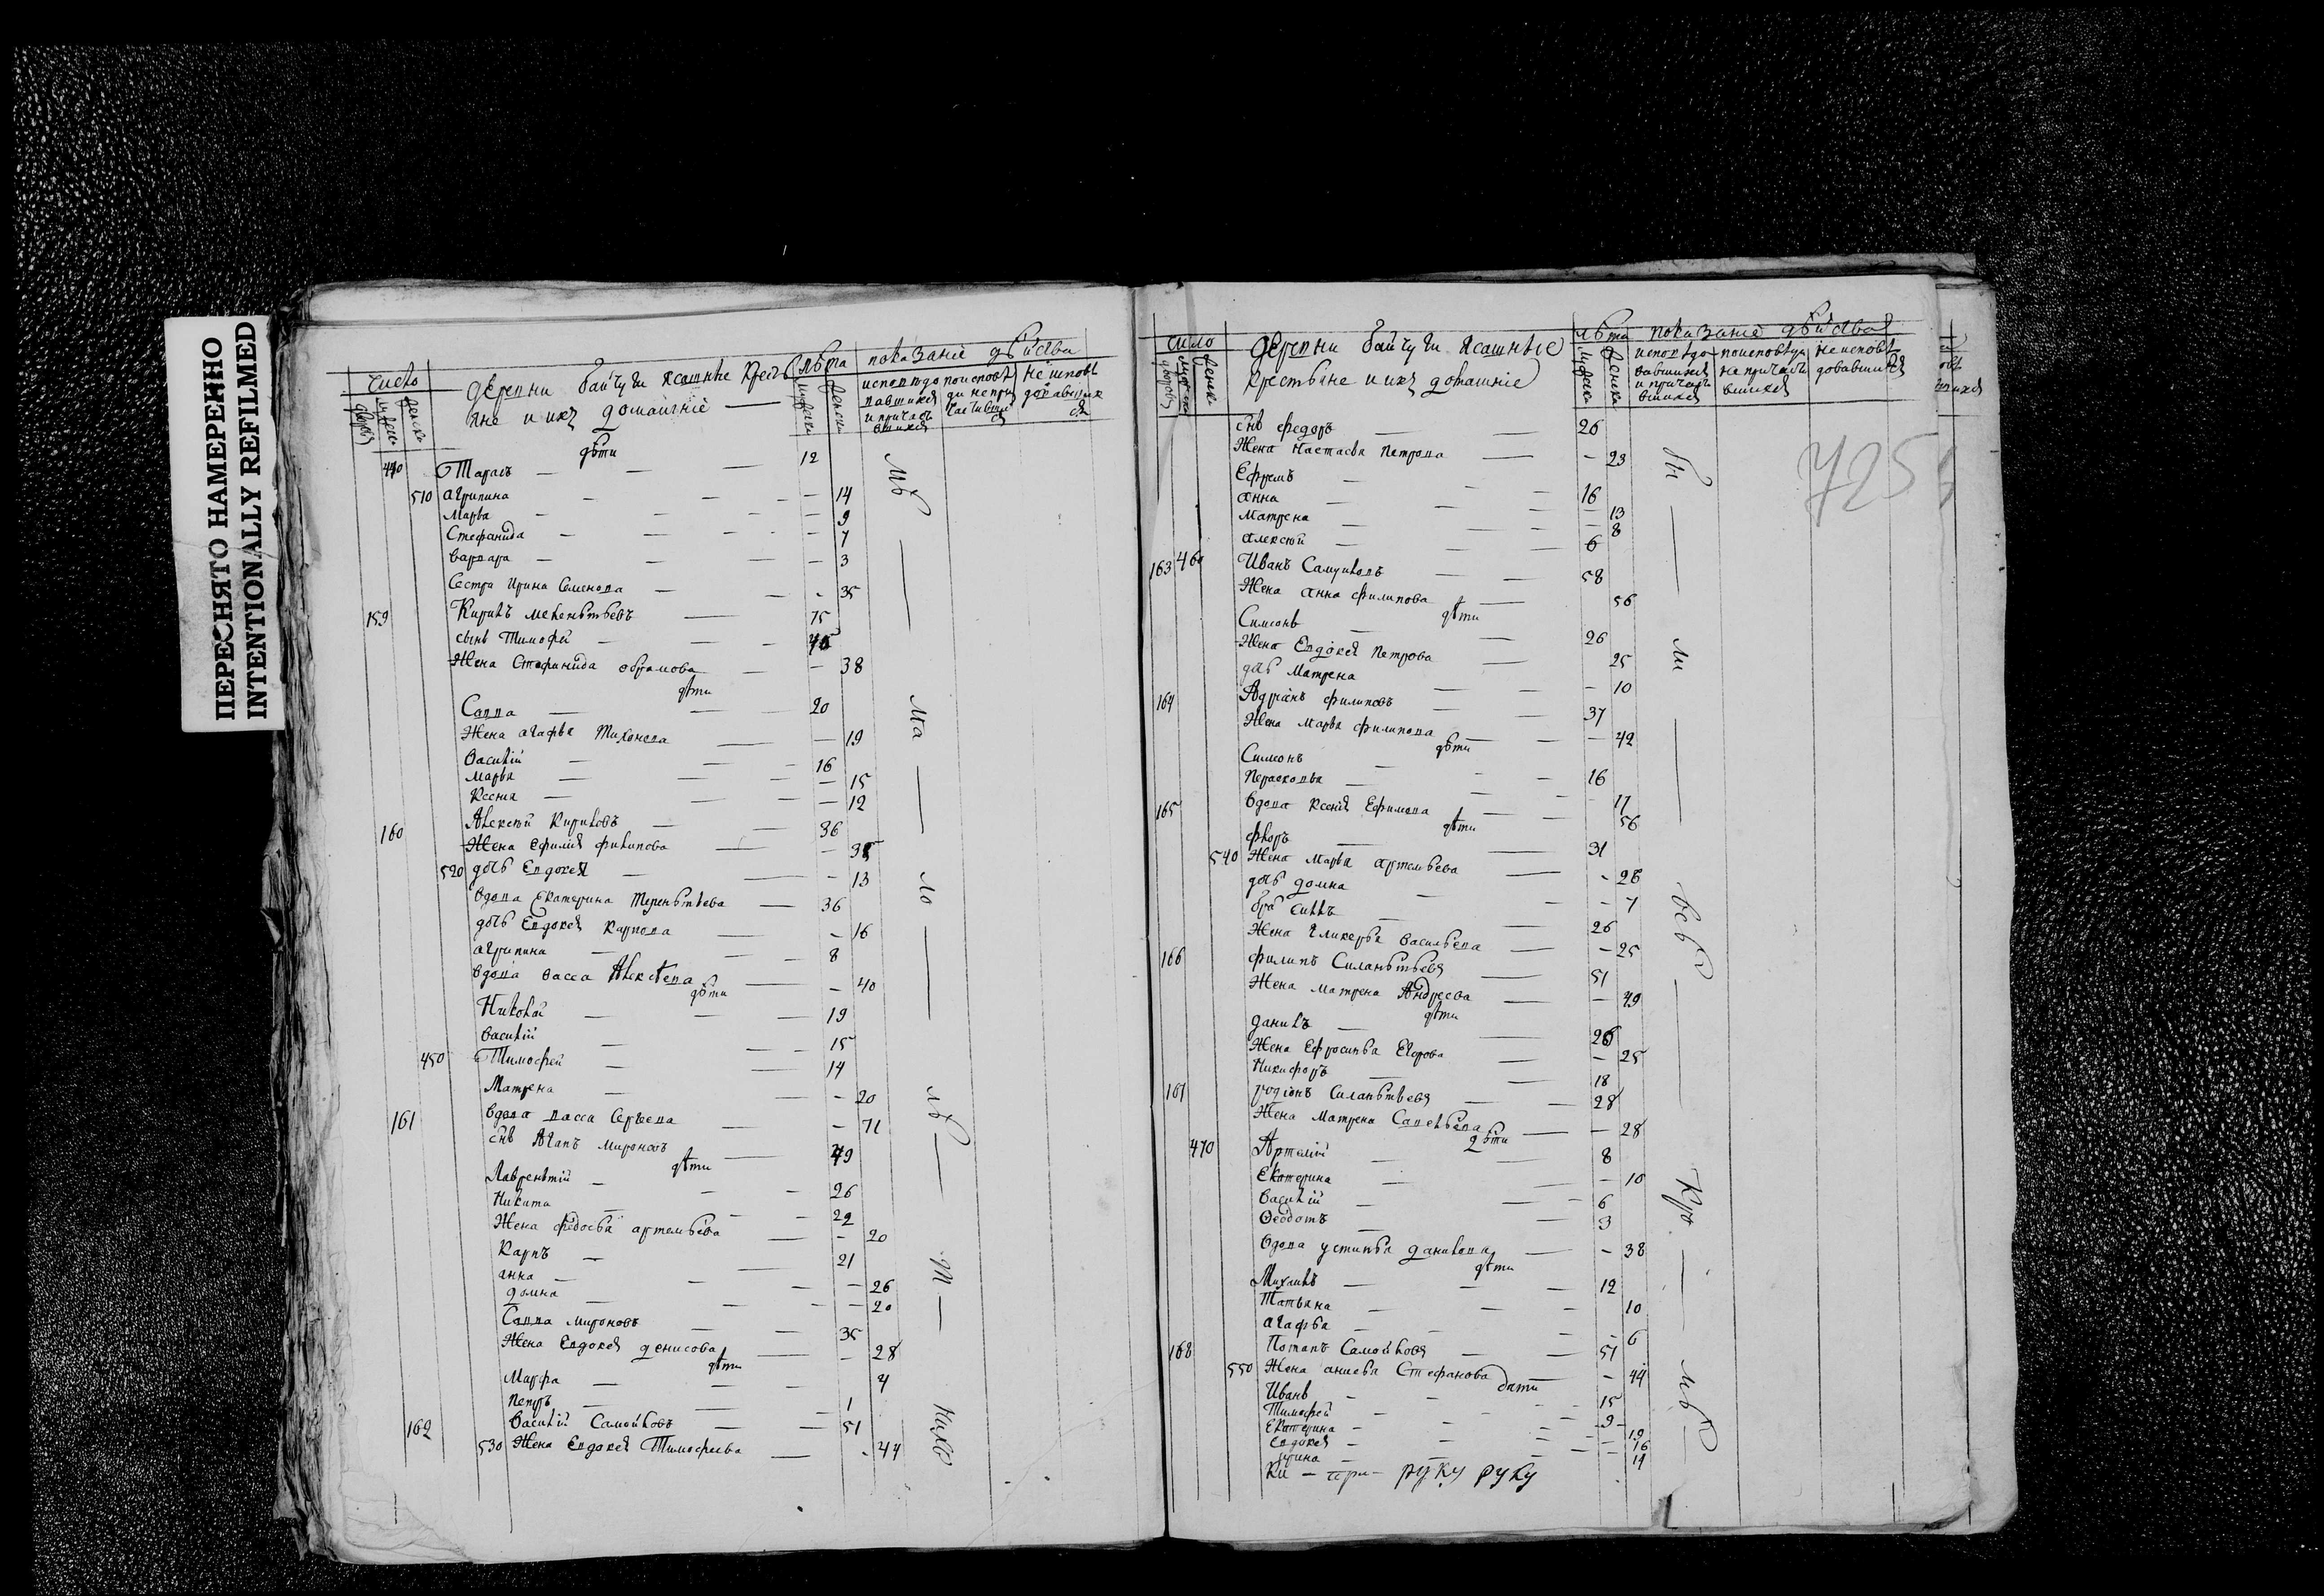 ПЕРЕСНЯТО НАМЕРЕННО
INTENTIONALLY REFILMED
число
деревни байчуги ясашные крестья
не и ихъ домашнїе
лѣта
показанїе дѣйства
дѣти
440 Тарасъ 12
510 агрипина 14
марѳа 9
Стефанида 7
варвара 3
Сестра Ирина Семенова 35
159 Кирилъ мелентьевъ 75
сынъ Тимофѣй
Жена Стефанида обрамова 38
дѣти
Савва 20
Жена агафья Тихонова 19
василїй 16
марья 15
Ксенья 12
160 Алексѣй Кириловъ 36
Жена Ефимия филипова
520 дочь Евдокея 13
вдова Екатерина Терентьева 36
дочь Евдокея Карпова 16
агрипина 8
вдова васса Алексѣева 40
дѣти
Николай 19
василїй 15
450 Тимофей 14
Матрена 20
161 вдова васса Сергѣева 71
снъ Агапъ мироновъ 49
дѣти
Лаврентїй 26
Никита 22
Жена федосья артемьева 20
Карпъ 21
анна 26
домна 20
Савва мироновъ 35
Жена Евдокея денисова 28
дѣти
Марфа 4
петръ 1
162 василїй Самойловъ 51
530 Жена Евдокея Тимофеева 44
число
деревни байчуги ясашные
крестьяне и ихъ домашнїе
лѣта
показанїе дѣйства
725
снъ федоръ 26
Жена настасья петрова 23
Ефремъ 16
анна 13
матрена 8
алексѣй 6
163 460 Иванъ Самуиловъ 58
Жена анна филипова 56
дѣти
Симеонъ 26
Жена Евдокея петрова 25
дочь матрена 10
164 Адрианъ филиповъ 37
Жена марья филипова 42
дѣти
Симеонъ 16
парасковья 17
165 вдова Ксения Ефимова 56
дѣти
флоръ 31
540 Жена марья артемьева 28
дочь домна 7
бра силъ 26
Жена гликерья васильева 25
166 филипъ Силантьевъ 51
Жена матрена Андреева 49
дѣти
данилъ 26
Жена Ефросинья Егорова 25
Никифоръ 18
167 родїонъ Силантьевъ 28
Жена матрена Савельева 28
дѣти
470 Артемїй 8
Екатерина 10
василїй 6
Ѳеодотъ 3
вдова устинья данилова 38
дѣти
Михаилъ 12
Татьяна 10
агафья 6
168 Потапъ Самойловъ 51
550 Жена анисья Стефанова 44
дѣти
Иванъ 15
Тимофей 9
Екатерина 19
Евдокея 16
ирина 14
руку руку